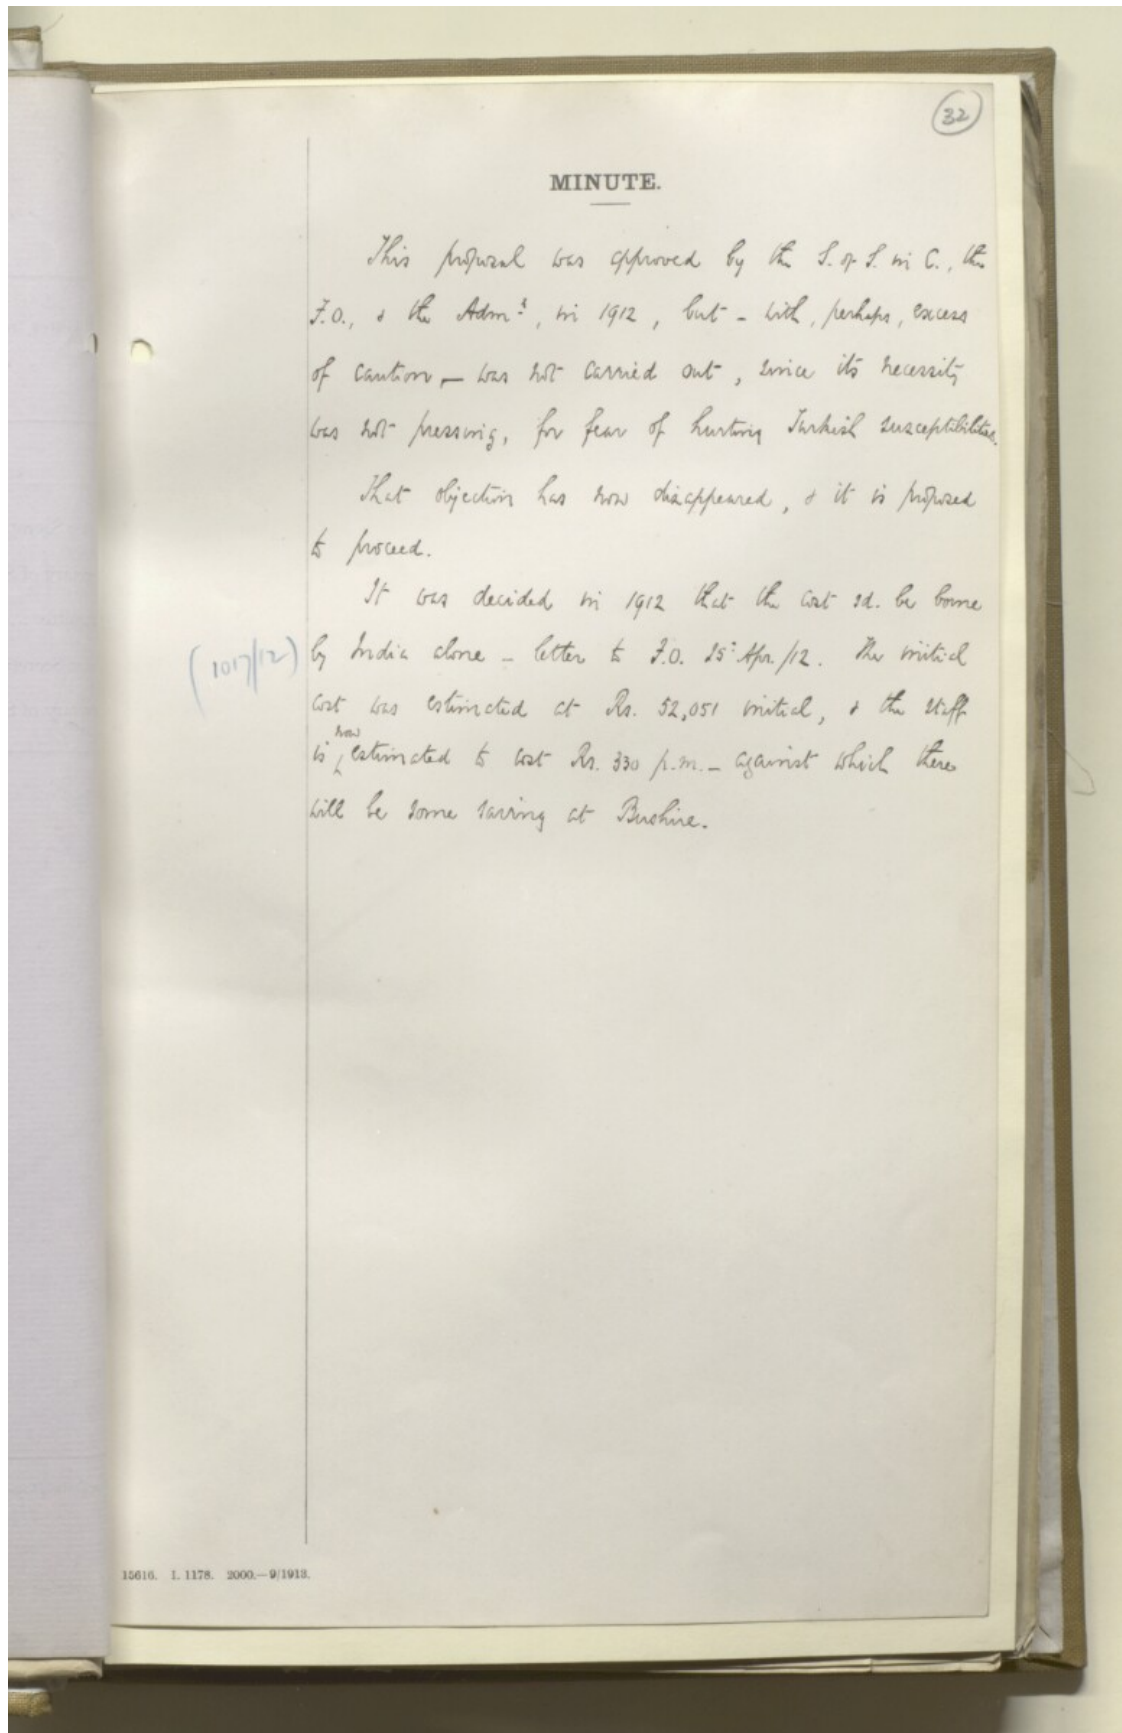 32
MINUTE.
This proposal was approved by the S. of S. in C., the
F.O., & the Adm:y, in 1912, but – with, perhaps, excess
of caution, – was not carried out, since its necessity
was not pressing, for fear of hurting Turkish susceptibilities.
That objection has now disappeared, & it is proposed
to proceed.
It was decided in 1912 that the cost sd. be borne
(1017/12)
by India alone – letter to F.O. 25: Apr. /12. The initial
cost was estimated at Rs. 52,051 initial, & the staff
now
is estimated to cost Rs. 330 p.m. – against which there
will be some saving at Bushire.
15616. I. 1178. 2000.—9/1913.